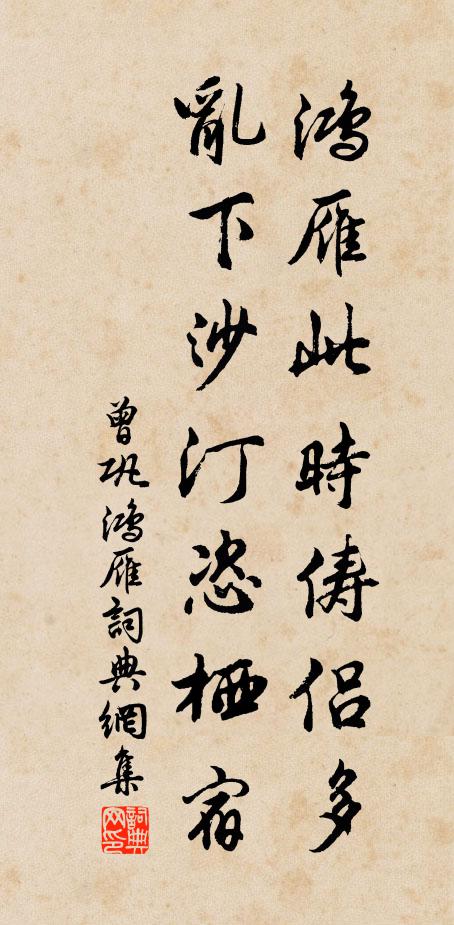 鴻雁此時儔侶多
亂下沙汀恣栖宿
曾巩鴻雁詞典網集
詞典网印